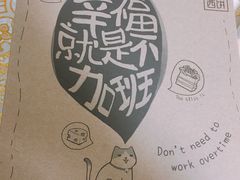 幸福
就是不
加班
Don't need to
work overtime